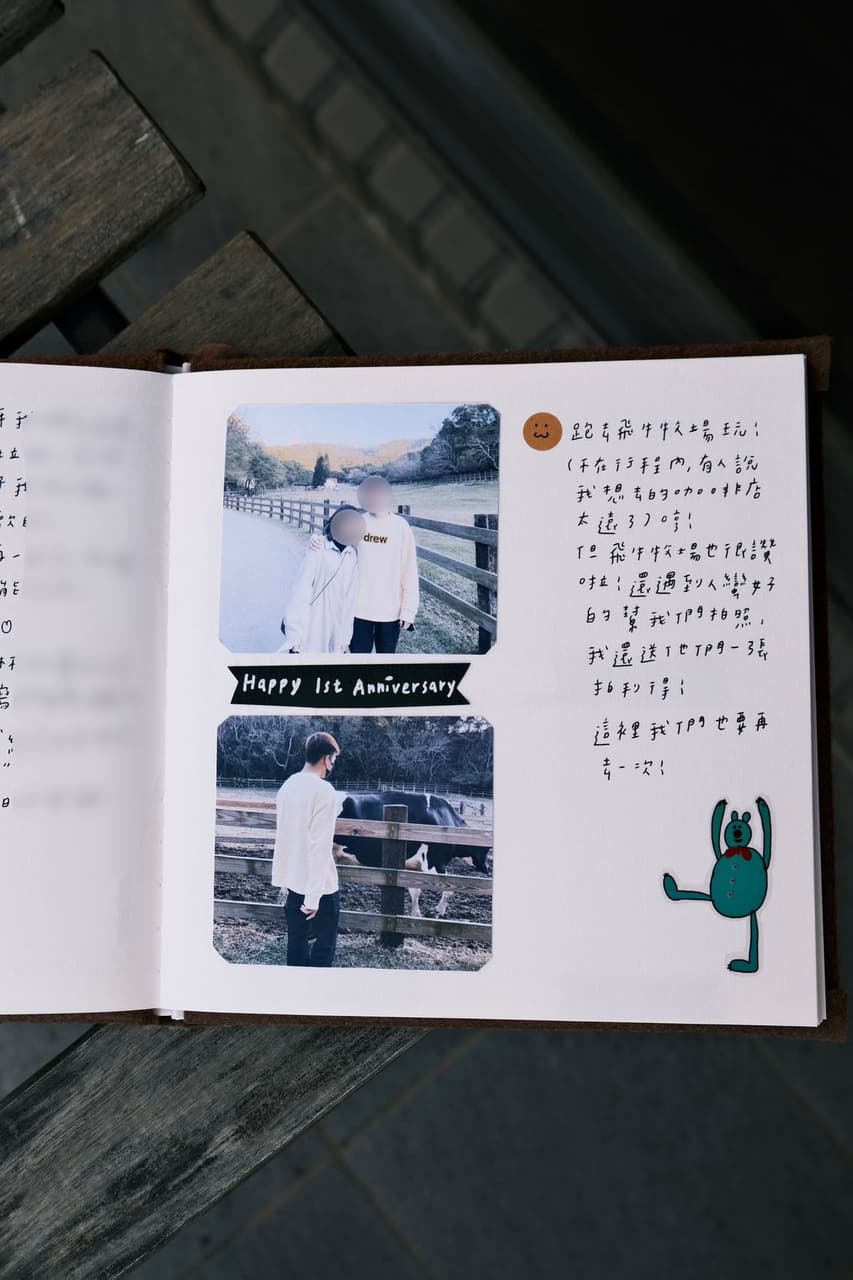 drew
Happy 1st Anniversary
跑去飛牛牧場玩！
(不在行程內,有人說
我想去的咖啡店
太遠了)哼！
但飛牛牧場也很讚
啦！還遇到人蠻好
的幫我們拍照,
我還送他們一張
拍利得！
這裡我們也要再
去一次！